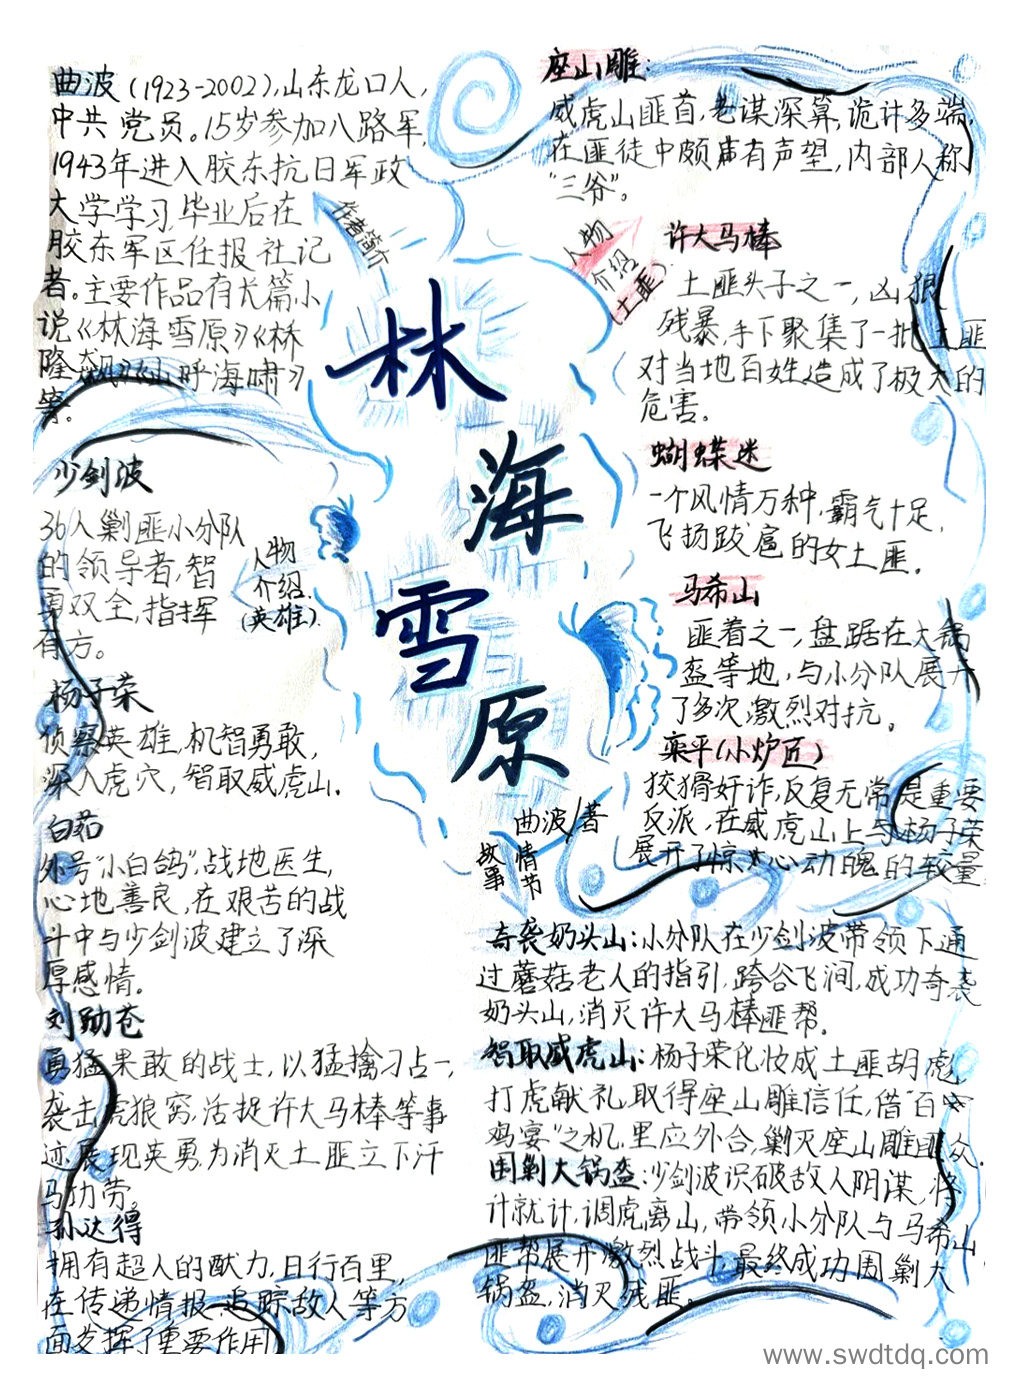 曲波(1923-2002),山东龙口人,
中共党员。15岁参加八路军,
1943年进入胶东抗日军政
大学学习,毕业后在
胶东军区任报社记
者。主要作品有长篇小
说《林海雪原》《桥
隆飙》《山呼海啸》
等。
作者简介
林
海
雪
原
曲波/著
少剑波
36人剿匪小分队
的领导者,智
勇双全,指挥
有方。
人物
介绍
(英雄)
杨子荣
侦察英雄,机智勇敢,
深入虎穴,智取威虎山.
白茹
外号“小白鸽”,战地医生,
心地善良,在艰苦的战
斗中与少剑波建立了深
厚感情。
刘勋苍
勇猛果敢的战士,以猛擒刁占一,
袭击虎狼窝,活捉许大马棒等事
迹展现英勇,为消灭土匪立下汗
马功劳。
孙达得
拥有超人的耐力,日行百里,
在传递情报,追踪敌人等方
面发挥了重要作用
人物
介绍
(土匪)
座山雕:
威虎山匪首,老谋深算,诡计多端,
在匪徒中颇有声望,内部人称
“三爷”。
许大马棒
土匪头子之一,凶狠
残暴,手下聚集了一批土匪
对当地百姓造成了极大的
危害。
蝴蝶迷
一个风情万种,霸气十足,
飞扬跋扈的女土匪.
马希山
匪首之一,盘踞在大锅
盔等地,与小分队展开
了多次激烈对抗。
栾平(小炉匠)
狡猾奸诈,反复无常是重要
反派,在威虎山上与杨子荣
展开了惊心动魄的较量
故事
情节
奇袭奶头山:小分队在少剑波带领下通
过蘑菇老人的指引,跨谷飞涧,成功奇袭
奶头山,消灭许大马棒匪帮.
智取威虎山:杨子荣化妆成土匪胡彪
打虎献礼,取得座山雕信任,借“百
鸡宴”之机,里应外合,剿灭座山雕匪众.
围剿大锅盔:少剑波识破敌人阴谋,将
计就计,调虎离山,带领小分队与马希山
匪帮展开激烈战斗,最终成功围剿大
锅盔,消灭残匪。
www.swdtdq.com